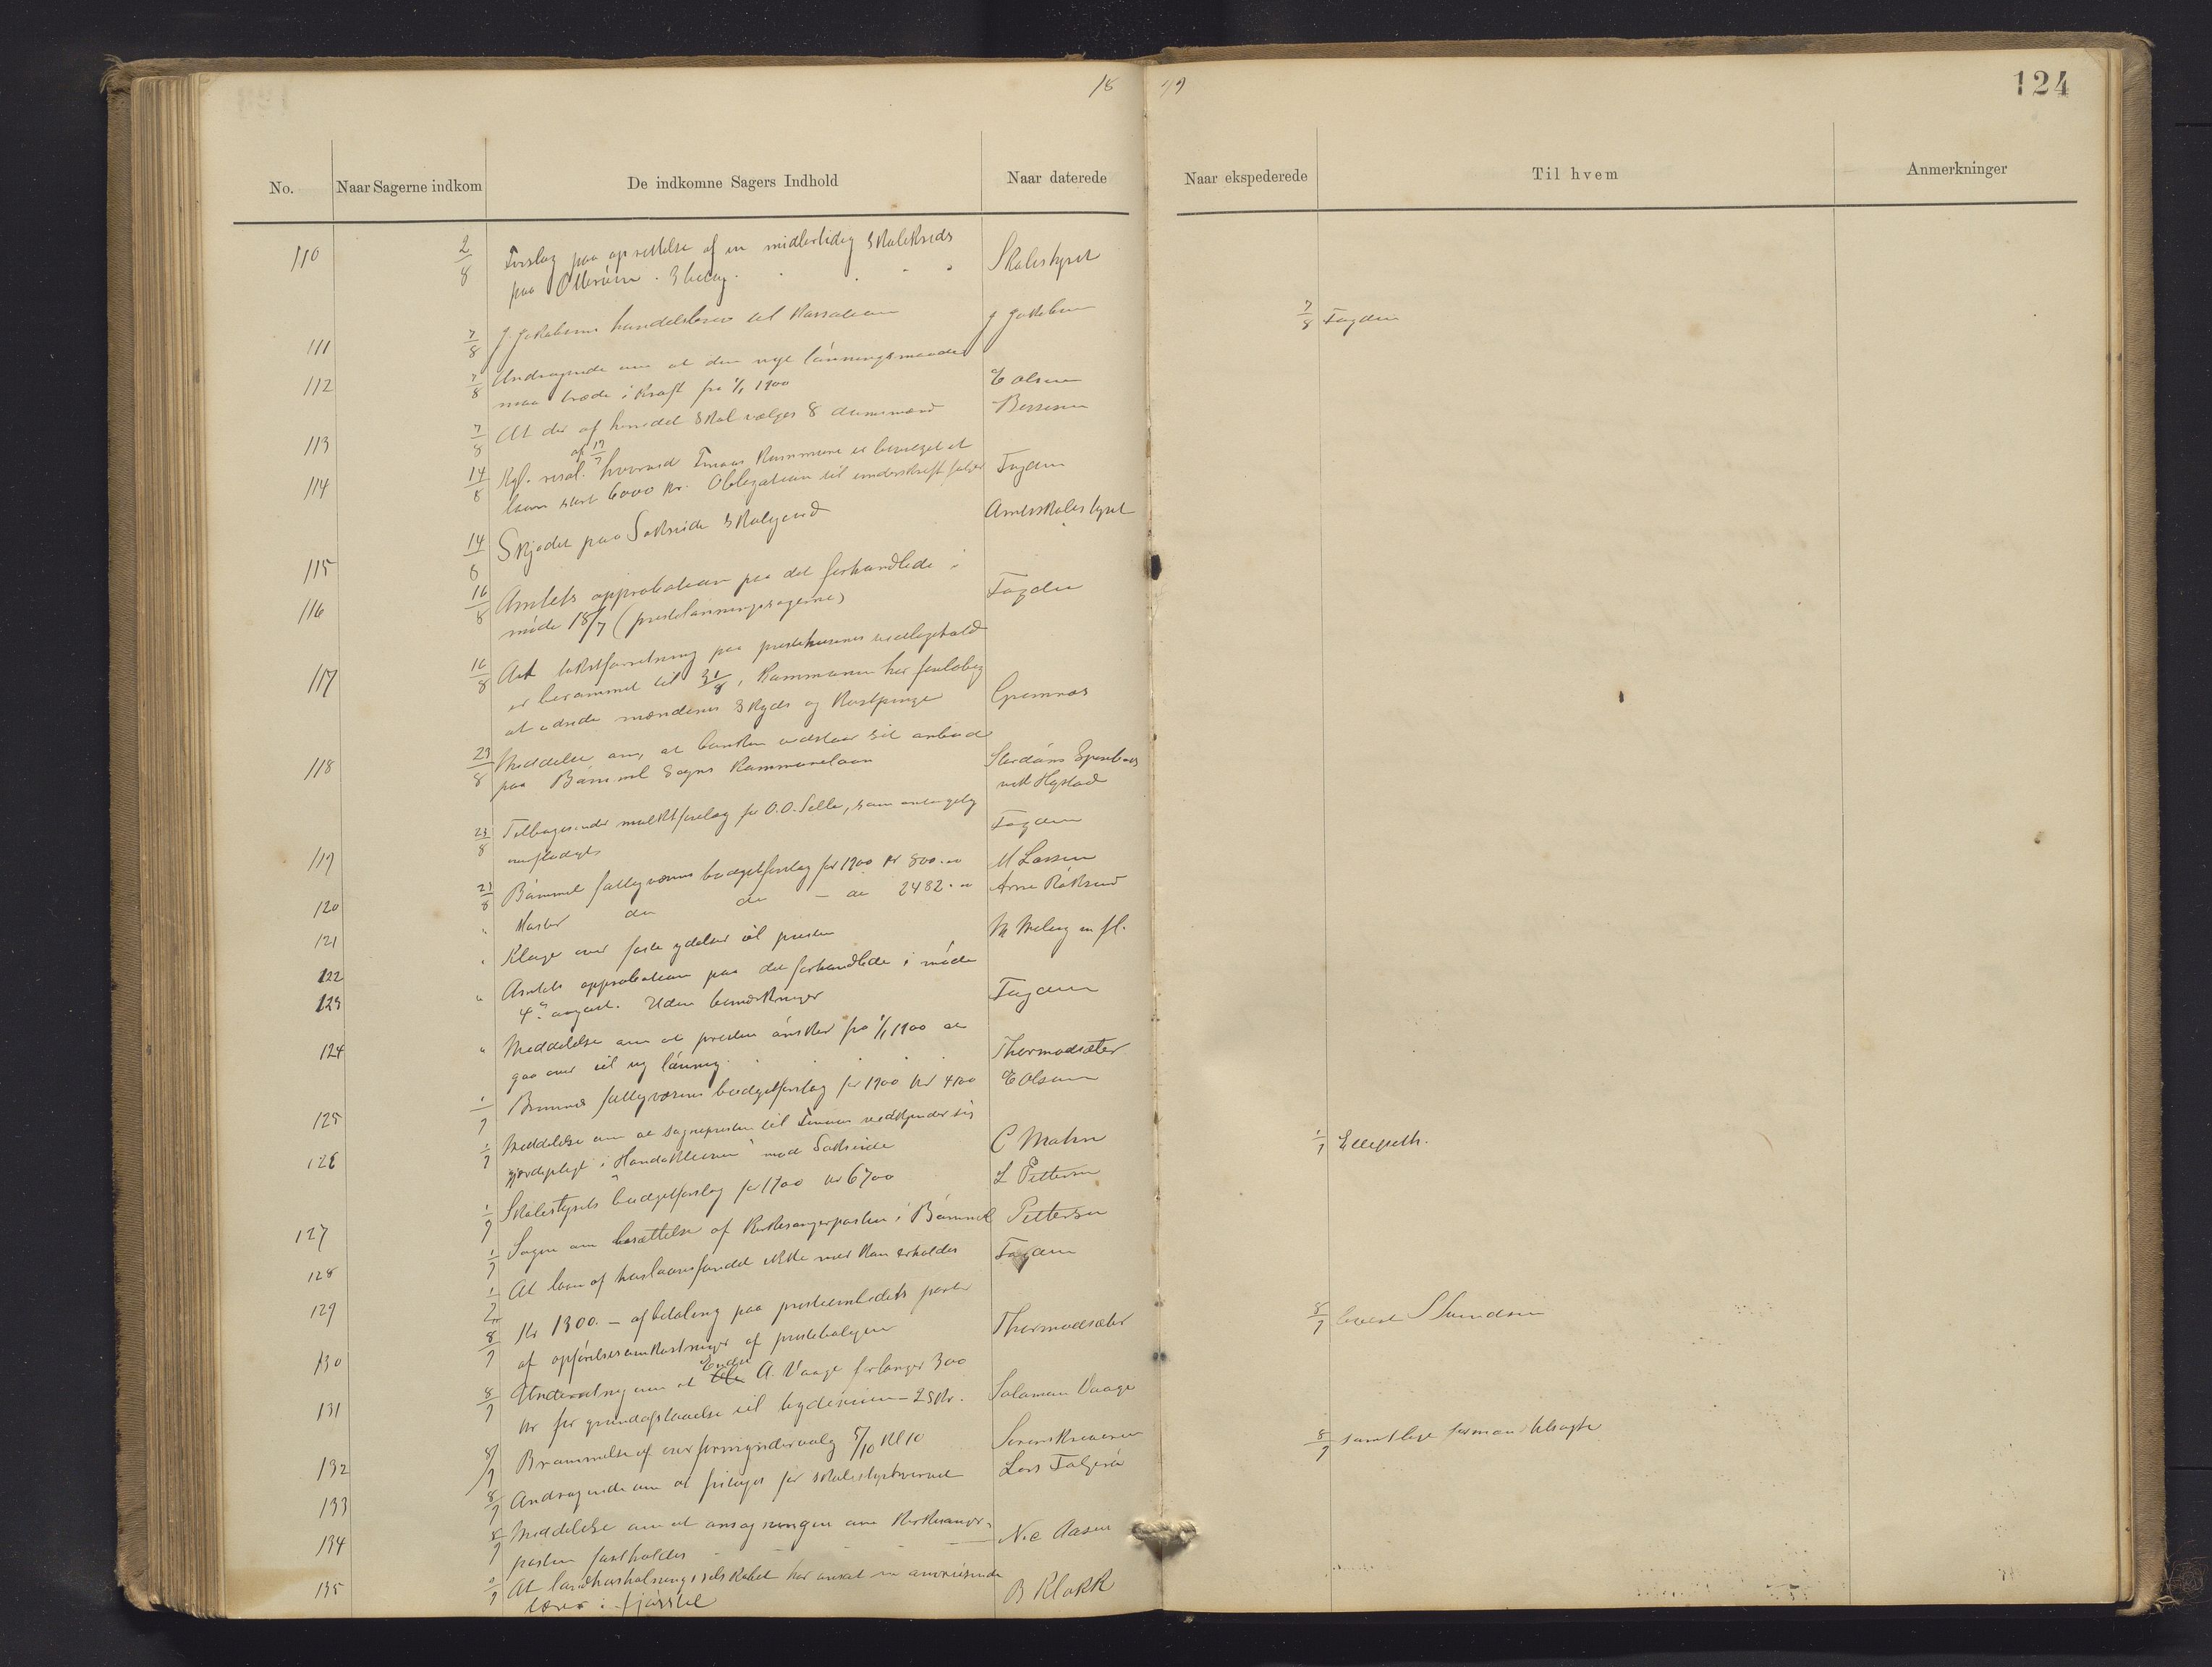 18 99
124
No. Naar Sagerne indkom De indkomne Sagers Indhold Naar daterede Naar ekspederede Til hvem Anmerkninger
110 2/8 Forslag paa oprettelse af en midlertidig skolekreds
paa Otterøen. 3 bilag. Skolestyret
111 7/8 J. Jakobsens handelsbrev til J Jakobsen 7/8 Fogden
112 7/8 Andragende om at den nye lønningsmaade
maa træde i kraft fra 1/1 1900 E Olsen
113 7/8 At der af herredet skal vælges 8 domsmænd
114 14/8 Kgl. resol. af 19/7 hvorved Finaas Kommune er bevilget et
laan stort 6000 kr. Obligation til underskrift følger Fogden
115 14/8 Skjødet paa Sakseide skolejord Amtsskolestyret
116 16/8 Amtets approbation paa det forhandlede i
møde 18/7 (prestelønningssagerne) Fogden
117 16/8 At takstforretning paa prestehusenes vedligehold
er berammet til 31/8, Kommunen har foreløbig
at udrede mændenes skyds og kostpenge Gremnæs
118 23/8 Meddelse om, at banken vedstaar sit anbud
paa Bømmel Sogns Kommunelaan Størdøens Sparebank
ved Hystad
119 23/8 Tilbagesender mulktforelæg for O. O. Selle, som antagelig
Fogden
120 23/8 Bømmel fattigvæsens budgetforslag for 1900 kr 800.00 M Larsen
121 " Moster do do - do 2482.00 Arne Røksund
122 " Klage over faste ydelser til presten M Meling m fl.
123 " Amtets approbation paa det forhandlede i møde
4. august. Uden bemærkninger Fogden
124 " Meddelelse om at presten ønsker fra 1/1 1900 at
gaa over til ny lønning Thormodsæter
125 1/9 Bremnes fattigvæsens budgetforslag for 1900 kr 4100 E Olsen
126 1/9 Meddelelse om at sognepresten til Finaas vedkjender sig
gjerdepligt i "Handakleiven" mod Sakseide C Mohn 1/9 Ellefseth.
127 1/9 Skolestyrets budgetforslag for 1900 kr 6700 L Pettersen
128 1/9 Sagen om besættelse af Kirkesangerposten i Bømmel Pettersen
129 1/9 At laan af huslaansfondet ikke mer kan erholdes Fogden
130 8/9 Kr 1300.- afbetaling paa presteembedets part
af opførelsesomkostninger af presteboligen Thormodsæter 8/9
131 8/9 Underretning om at Endre A. Vaage forlanger 300
kr for grundafstaaelse til bygdeveien - 25 kr. Salamon Vaage
132 8/9 Berammelse af overformyndervalg 5/10 kl 10 Sorenskriveren 8/9 samtlige formandskapet
133 8/9 Andragende om at fritages for skolestyrehvervet Lars Folgerø
134 8/9 Meddelelse om at ansøgningen om Kirkesanger-
posten fastholdes N. C Aasen
135 At landhusholdningsselskabet har ansat en anvisende
lærer i fjøsstel B Klokk